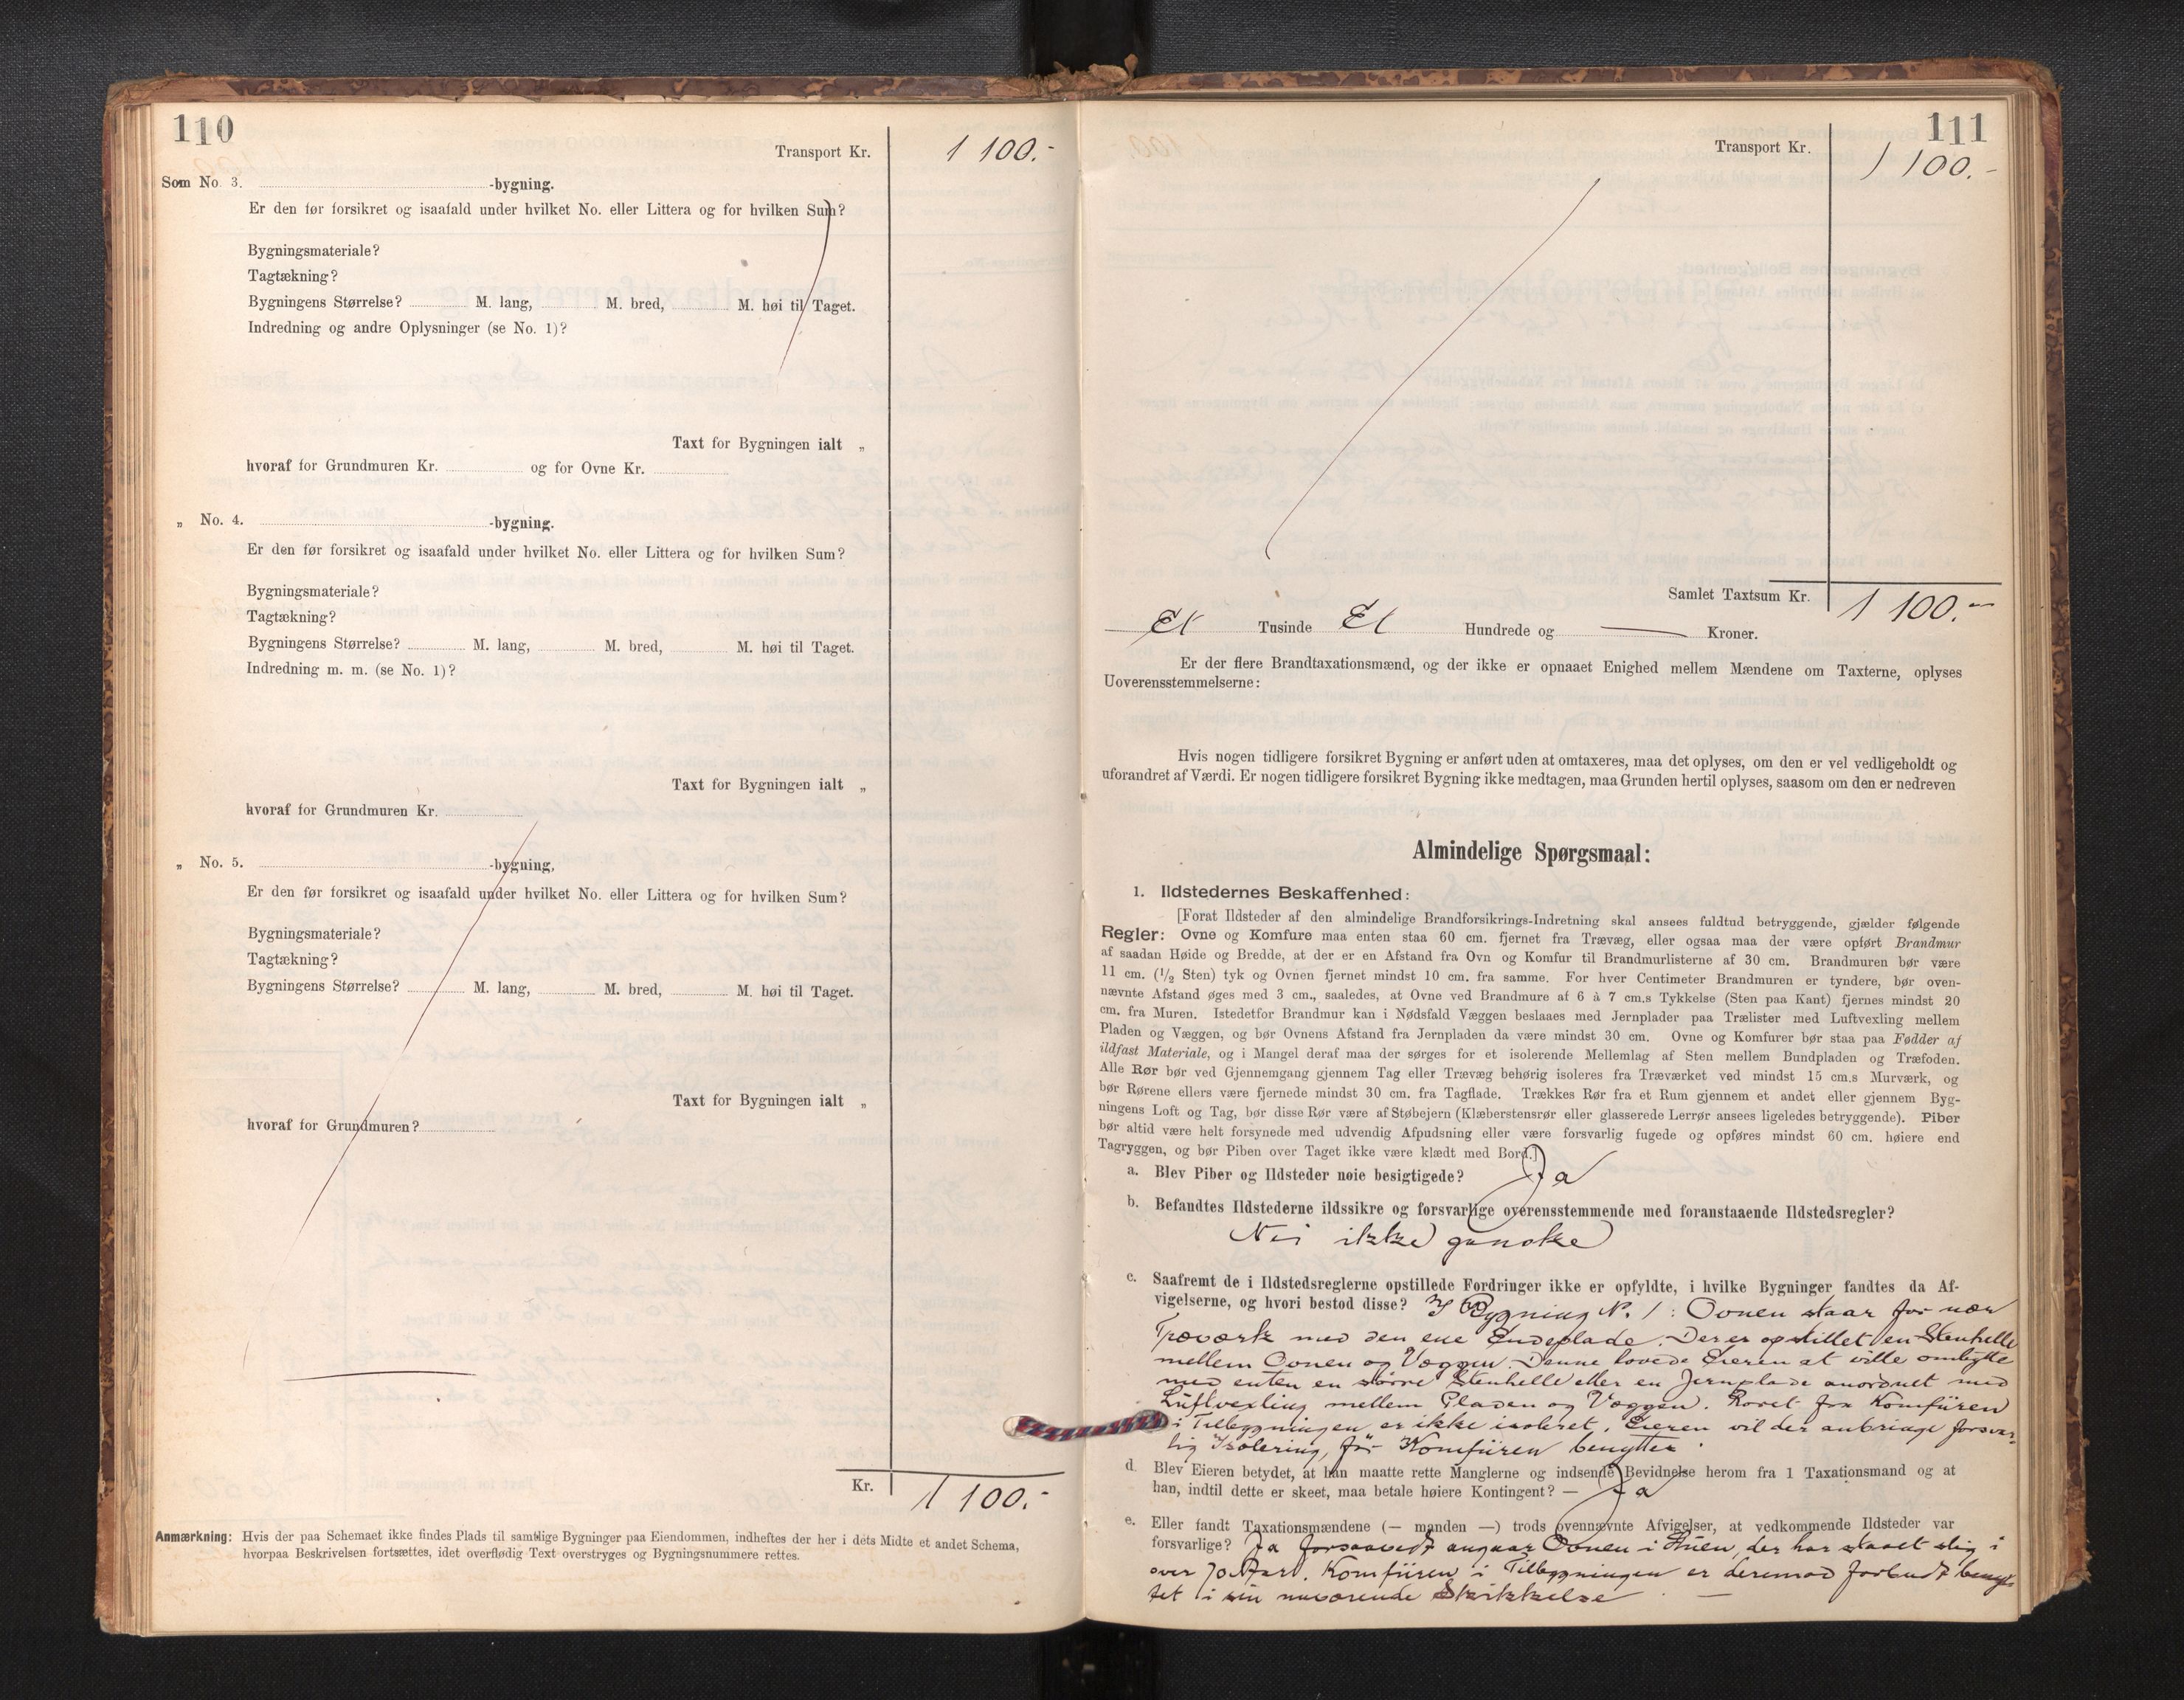 110
Transport Kr. 1 100.-
Som No. 3. -bygning.
Er den før forsikret og isaafald under hvilket No. eller Littera og for hvilken Sum?
Bygningsmateriale?
Tagtækning?
Bygningens Størrelse? M. lang, M. bred, M. høi til Taget.
Indredning og andre Oplysninger (se No. 1)?
Taxt for Bygningen ialt „
hvoraf for Grundmuren Kr. og for Ovne Kr.
„ No. 4. -bygning.
Er den før forsikret og isaafald under hvilket No. eller Littera og for hvilken Sum?
Bygningsmateriale?
Tagtækning?
Bygningens Størrelse? M. lang, M. bred, M. høi til Taget.
Indredning m. m. (se No. 1)?
Taxt for Bygningen ialt „
hvoraf for Grundmuren Kr.
„ No. 5. -bygning,
Er den før forsikret og isaafald under hvilket No. eller Littera og for hvilken Sum?
Bygningsmateriale?
Tagtækning?
Bygningens Størrelse? M. lang, M. bred, M. høi til Taget.
Taxt for Bygningen ialt „
hvoraf for Grundmuren?
Kr. 1 100.-
Anmærkning: Hvis der paa Schemaet ikke findes Plads til samtlige Bygninger paa Eiendommen, indheftes der her i dets Midte et andet Schema,
hvorpaa Beskrivelsen fortsættes, idet overflødig Text overstryges og Bygningsnummere rettes.
111
Transport Kr. 1 100.-
Samlet Taxtsum Kr. 1 100.-
Et Tusinde Et Hundrede og — Kroner.
Er der flere Brandtaxationsmænd, og der ikke er opnaaet Enighed mellem Mændene om Taxterne, oplyses
Uoverensstemmelserne:
Hvis nogen tidligere forsikret Bygning er anført uden at omtaxeres, maa det oplyses, om den er vel vedligeholdt og
uforandret af Værdi. Er nogen tidligere forsikret Bygning ikke medtagen, maa Grunden hertil oplyses, saasom om den er nedreven
Almindelige Spørgsmaal:
1. Ildstedernes Beskaffenhed:
[Forat Ildsteder af den almindelige Brandforsikrings-Indretning skal ansees fuldtud betryggende, gjælder følgende
Regler: Ovne og Komfure maa enten staa 60 cm. fjernet fra Trævæg, eller ogsaa maa der være opført Brandmur
af saadan Høide og Bredde, at der er en Afstand fra Ovn og Komfur til Brandmurlisterne af 30 cm. Brandmuren bør være
11 cm. (1/2 Sten) tyk og Ovnen fjernet mindst 10 cm. fra samme. For hver Centimeter Brandmuren er tyndere, bør oven-
nævnte Afstand øges med 3 cm., saaledes, at Ovne ved Brandmure af 6 à 7 cm.s Tykkelse (Sten paa Kant) fjernes mindst 20
cm. fra Muren. Istedetfor Brandmur kan i Nødsfald Væggen beslaaes med Jernplader paa Trælister med Luftvexling mellem
Pladen og Væggen, og bør Ovnens Afstand fra Jernpladen da være mindst 30 cm. Ovne og Komfurer bør staa paa Fødder af
ildfast Materiale, og i Mangel deraf maa der sørges for et isolerende Mellemlag af Sten mellem Bundpladen og Træfoden.
Alle Rør bør ved Gjennemgang gjennem Tag eller Trævæg behørig isoleres fra Træværket ved mindst 15 cm.s Murværk, og
bør Rørene ellers være fjernede mindst 30 cm. fra Tagflade. Trækkes Rør fra et Rum gjennem et andet eller gjennem Byg-
ningens Loft og Tag, bør disse Rør være af Støbejern (Klæberstensrør eller glasserede Lerrør ansees ligeledes betryggende). Piber
bør altid være helt forsynede med udvendig Afpudsning eller være forsvarlig fugede og opføres mindst 60 cm. høiere end
Tagryggen, og bør Piben over Taget ikke være klædt med Bord.]
a. Blev Piber og Ildsteder nøie besigtigede? Ja
b. Befandtes Ildstederne ildssikre og forsvarlige overensstemmende med foranstaaende Ildstedsregler?
Nei ikke ganske
c. Saafremt de i Ildstedsreglerne opstillede Fordringer ikke er opfyldte, i hvilke Bygninger fandtes da Af-
vigelserne, og hvori bestod disse? I Bygning N. 1: Ovnen staar for nær
Træværk med den ene Endeplade. Der er opstillet en Stenhelle
mellem Ovnen og Væggen. Denne lovede Eieren at ville ombytte
med enten en større Stenhelle eller en Jernplade anordnet med
Luftvexling mellem Pladen og Væggen. Røret fra Komfüren
i Tilbygningen er ikke isoleret. Eieren vil der anbringe forsvar-
lig Isolering, før Komfüren benyttes.
d. Blev Eieren betydet, at han maatte rette Manglerne og indsende Bevidnelse herom fra 1 Taxationsmand og at
han, indtil dette er skeet, maa betale høiere Kontingent? — Ja
e. Eller fandt Taxationsmændene (— manden —) trods ovennævnte Afvigelser, at vedkommende Ildsteder var
forsvarlige? Ja forsaavidt angaar Ovnen i Stuen, der har staaet slig i
over 70 Aar. Komfüren i Tilbygningen er derimod forbudt benyt-
tet i sin nuværende Skikkelse